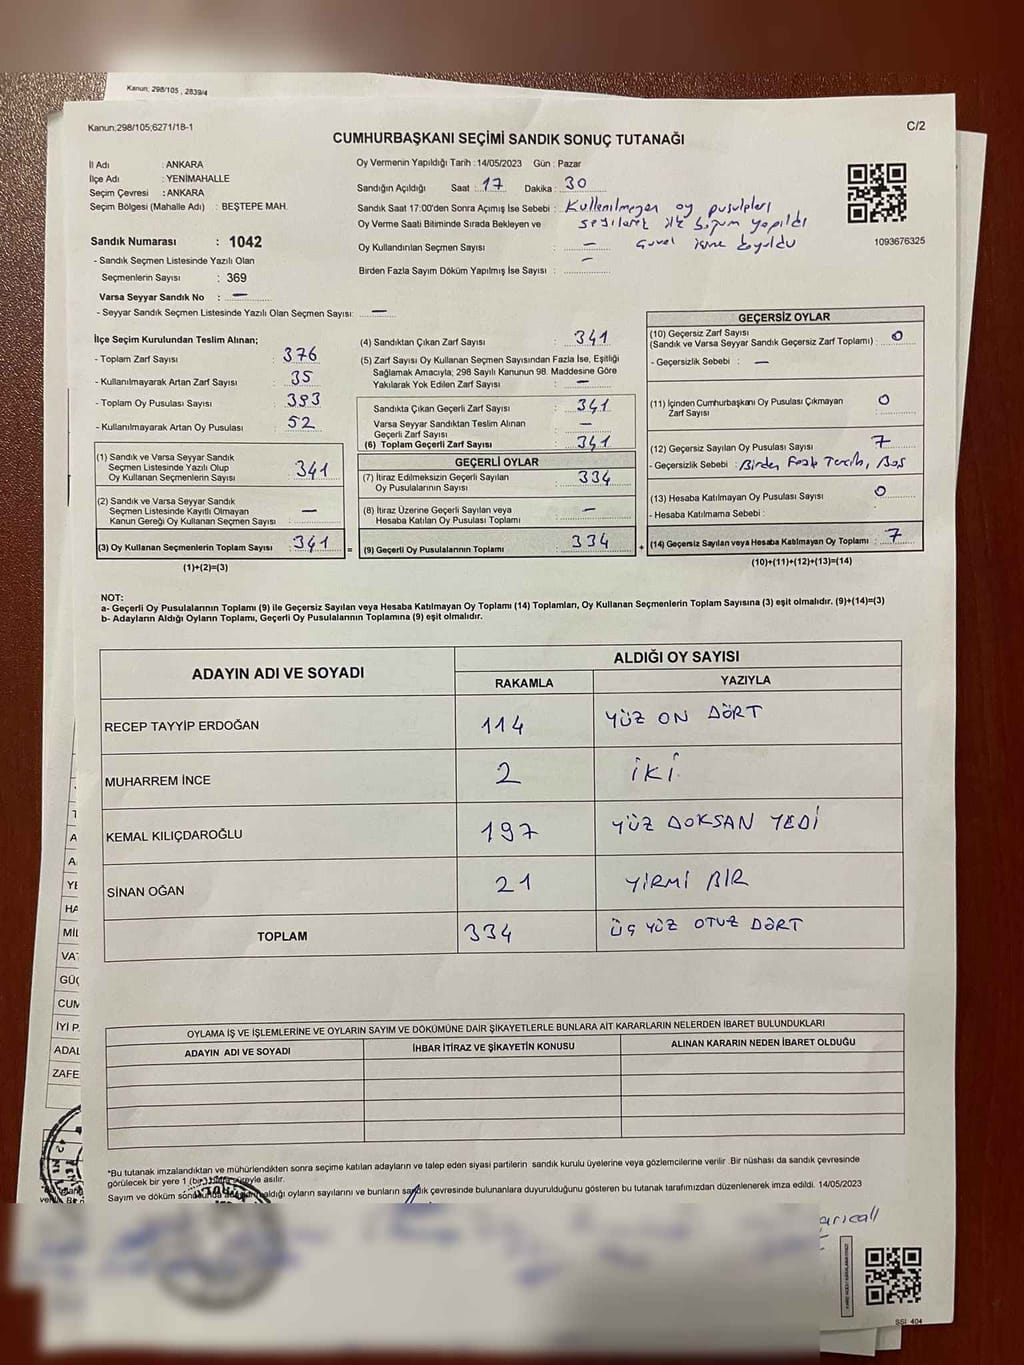 Kanun; 298/105 , 2839/4
Kanun;298/105;6271/18-1
C/2
CUMHURBAŞKANI SEÇİMİ SANDIK SONUÇ TUTANAĞI
İl Adı : ANKARA
İlçe Adı : YENİMAHALLE
Seçim Çevresi : ANKARA
Seçim Bölgesi (Mahalle Adı) : BEŞTEPE MAH.
Sandık Numarası : 1042
- Sandık Seçmen Listesinde Yazılı Olan
Seçmenlerin Sayısı : 369
Varsa Seyyar Sandık No : —
- Seyyar Sandık Seçmen Listesinde Yazılı Olan Seçmen Sayısı: —
Oy Vermenin Yapıldığı Tarih : 14/05/2023 Gün : Pazar
Sandığın Açıldığı Saat : 17 Dakika : 30
Sandık Saat 17:00'den Sonra Açımış İse Sebebi : Kullenılmeyen oy pusulpları
Oy Verme Saati Bitiminde Sırada Bekleyen ve
Oy Kullandırılan Seçmen Sayısı : —
Birden Fazla Sayım Döküm Yapılmış İse Sayısı : —
1093676325
İlçe Seçim Kurulundan Teslim Alınan;
- Toplam Zarf Sayısı : 376
- Kullanılmayarak Artan Zarf Sayısı : 35
- Toplam Oy Pusulası Sayısı : 393
- Kullanılmayarak Artan Oy Pusulası : 52
(1) Sandık ve Varsa Seyyar Sandık
Seçmen Listesinde Yazılı Olup
Oy Kullanan Seçmenlerin Sayısı : 341
(2) Sandık ve Varsa Seyyar Sandık
Seçmen Listesinde Kayıtlı Olmayan
Kanun Gereği Oy Kullanan Seçmen Sayısı : —
(3) Oy Kullanan Seçmenlerin Toplam Sayısı : 341
(1)+(2)=(3)
(4) Sandıktan Çıkan Zarf Sayısı : 341
(5) Zarf Sayısı Oy Kullanan Seçmen Sayısından Fazla İse, Eşitliği
Sağlamak Amacıyla; 298 Sayılı Kanunun 98. Maddesine Göre
Yakılarak Yok Edilen Zarf Sayısı : —
Sandıkta Çıkan Geçerli Zarf Sayısı : 341
Varsa Seyyar Sandıktan Teslim Alınan
Geçerli Zarf Sayısı : —
(6) Toplam Geçerli Zarf Sayısı : 341
GEÇERLİ OYLAR
(7) İtiraz Edilmeksizin Geçerli Sayılan
Oy Pusulalarının Sayısı : 334
(8) İtiraz Üzerine Geçerli Sayılan veya
Hesaba Katılan Oy Pusulası Toplamı : —
(9) Geçerli Oy Pusulalarının Toplamı : 334
GEÇERSİZ OYLAR
(10) Geçersiz Zarf Sayısı
(Sandık ve Varsa Seyyar Sandık Geçersiz Zarf Toplamı) : 0
- Geçersizlik Sebebi : —
(11) İçinden Cumhurbaşkanı Oy Pusulası Çıkmayan
Zarf Sayısı : 0
(12) Geçersiz Sayılan Oy Pusulası Sayısı : 7
- Geçersizlik Sebebi : Birden Fazla Tercih, Boş
(13) Hesaba Katılmayan Oy Pusulası Sayısı : 0
- Hesaba Katılmama Sebebi :
(14) Geçersiz Sayılan veya Hesaba Katılmayan Oy Toplamı : 7
(10)+(11)+(12)+(13)=(14)
NOT:
a- Geçerli Oy Pusulalarının Toplamı (9) ile Geçersiz Sayılan veya Hesaba Katılmayan Oy Toplamı (14) Toplamları, Oy Kullanan Seçmenlerin Toplam Sayısına (3) eşit olmalıdır. (9)+(14)=(3)
b- Adayların Aldığı Oyların Toplamı, Geçerli Oy Pusulalarının Toplamına (9) eşit olmalıdır.
ADAYIN ADI VE SOYADI ALDIĞI OY SAYISI
RAKAMLA YAZIYLA
RECEP TAYYİP ERDOĞAN 114 YÜZ ON DÖRT
MUHARREM İNCE 2 İKİ
KEMAL KILIÇDAROĞLU 197 YÜZ DOKSAN YEDİ
SİNAN OĞAN 21 YİRMİ BİR
TOPLAM 334 ÜÇ YÜZ OTUZ DÖRT
OYLAMA İŞ VE İŞLEMLERİNE VE OYLARIN SAYIM VE DÖKÜMÜNE DAİR ŞİKAYETLERLE BUNLARA AİT KARARLARIN NELERDEN İBARET BULUNDUKLARI
ADAYIN ADI VE SOYADI İHBAR İTİRAZ VE ŞİKAYETİN KONUSU ALINAN KARARIN NEDEN İBARET OLDUĞU
*Bu tutanak imzalandıktan ve mühürlendikten sonra seçime katılan adayların ve talep eden siyasi partilerin sandık kurulu üyelerine veya gözlemcilerine verilir .Bir nüshası da sandık çevresinde
görülecek bir yere 1 (bir) hafta süreyle asılır.
Sayım ve döküm aldığı oyların sayılarını ve bunların sandık çevresinde bulunanlara duyurulduğunu gösteren bu tutanak tarafımızdan düzenlenerek imza edildi. 14/05/2023
SSİ 404
T
A
A
YE
HA
MİL
VA
GÜÇ
CUM
İYİ P
ADAL
ZAFE